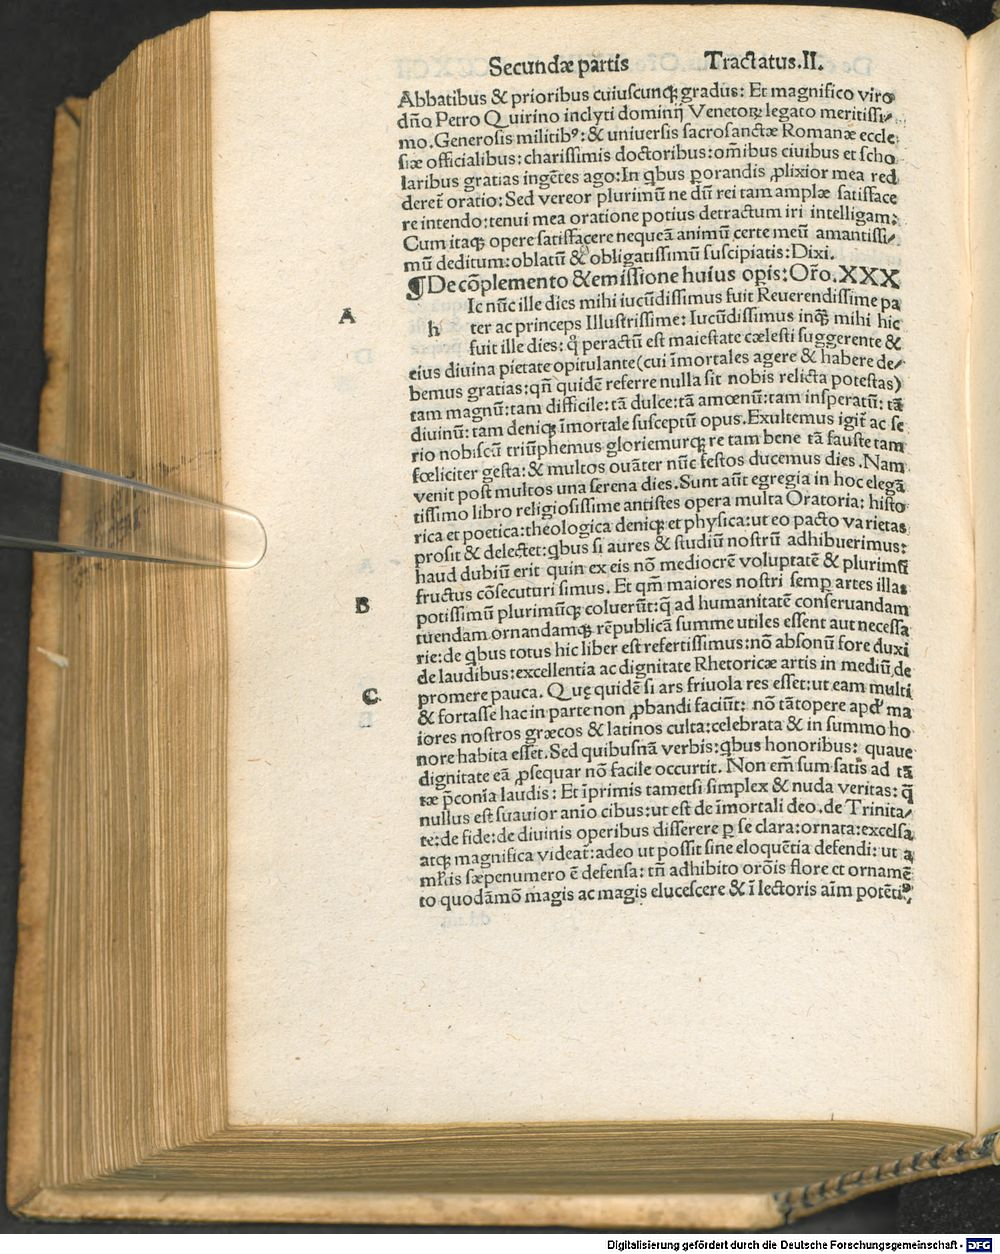 Secundæ partis Tractatus.II.
Abbatibus & prioribus cuiuscunqꝫ gradus: Et magnifico viro
dño Petro Quirino inclyti dominij Venetoꝝ legato meritissi⸗
mo.Generosis militibꝰ:& uniuersis sacrosanctæ Romanæ eccle
siæ officialibus:charissimis doctoribus:om̄ibus ciuibus et scho
laribus gratias ingētes ago:In qbus ꝑorandis ꝓlixior mea red
deret oratio:Sed vereor plurimū ne dū rei tam amplæ satisface
re intendo:tenui mea oratione potius detractum iri intelligam:
Cum itaqꝫ opere satisfacere nequeā animū certe meū amantissi⸗
mū deditum:oblatū & obligatissimū suscipiatis:Dixi.
¶De cōplemento & emissione huius opis:Oro.XXX
A
h
Ic nūc ille dies mihi iucūdissimus fuit Reuerendissime pa
ter ac princeps Illustrissime: Iucūdissimus inqꝫ mihi hic
fuit ille dies: ꝙ peractū est maiestate cœlesti suggerente &
eius diuina pietate opitulante(cui īmortales agere & habere de⸗
bemus gratias:qn̄ quidē referre nulla sit nobis relicta potestas)
tam magnū:tam difficile:tā dulce:tā amœnū:tam insperatū: tā
diuinū: tam deniqꝫ īmortale susceptū opus.Exultemus igit̄ ac se
rio nobiscū triūphemus gloriemurqꝫ re tam bene tā fauste tam
fœliciter gesta:& multos ouāter nūc festos ducemus dies.Nam
venit post multos una serena dies.Sunt aūt egregia in hoc elegā
tissimo libro religiosissime antistes opera multa Oratoria: histo
rica et poetica:theologica deniqꝫ et physica:ut eo pacto varietas
prosit & delectet:qbus si aures & studiū nostrū adhibuerimus:
haud dubiū erit quin ex eis nō mediocrē voluptatē & plurimū
fructus cōsecuturi simus. Et qm̄ maiores nostri semꝑ artes illas
B
potissimū plurimūqꝫ coluerūt:q̄ ad humanitatē conseruandam
tuendam ornandamqꝫ rēpublicā summe utiles essent aut necessa
rie:de qbus totus hic liber est refertissimus:nō absonū fore duxi
de laudibus:excellentia ac dignitate Rhetoricæ artis in mediū de
C
promere pauca. Quę quidē si ars friuola res esset:ut eam multi
& fortasse hac in parte non ꝓbandi faciūt: nō tātopere apd' ma
iores nostros græcos & latinos culta:celebrata & in summo ho
nore habita esset.Sed quibusnā verbis:qbus honoribus: quaue
dignitate eā ꝓsequar nō facile occurrit. Non em̄ sum satis ad tā
tæ p̄conia laudis: Et īprimis tametsi simplex & nuda veritas: q̄
nullus est suauior anio cibus:ut est de īmortali deo.de Trinita⸗
te:de fide:de diuinis operibus disserere ꝑ se clara:ornata:excelsa
atqꝫ magnifica videat̄:adeo ut possit sine eloquētia defendi: ut a
ml̄tis sæpenumero ē defensa: tn̄ adhibito orōis flore et ornamē
to quodāmō magis ac magis elucescere & ī lectoris aīm potētiꝰ
Digitalisierung gefördert durch die Deutsche Forschungsgemeinschaft - DFG